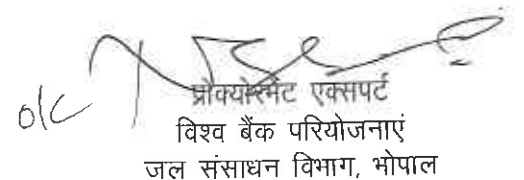 o/c
प्रौक्योरमेंट एक्सपर्ट
विश्व बैंक परियोजनाएं
जल संसाधन विभाग, भोपाल